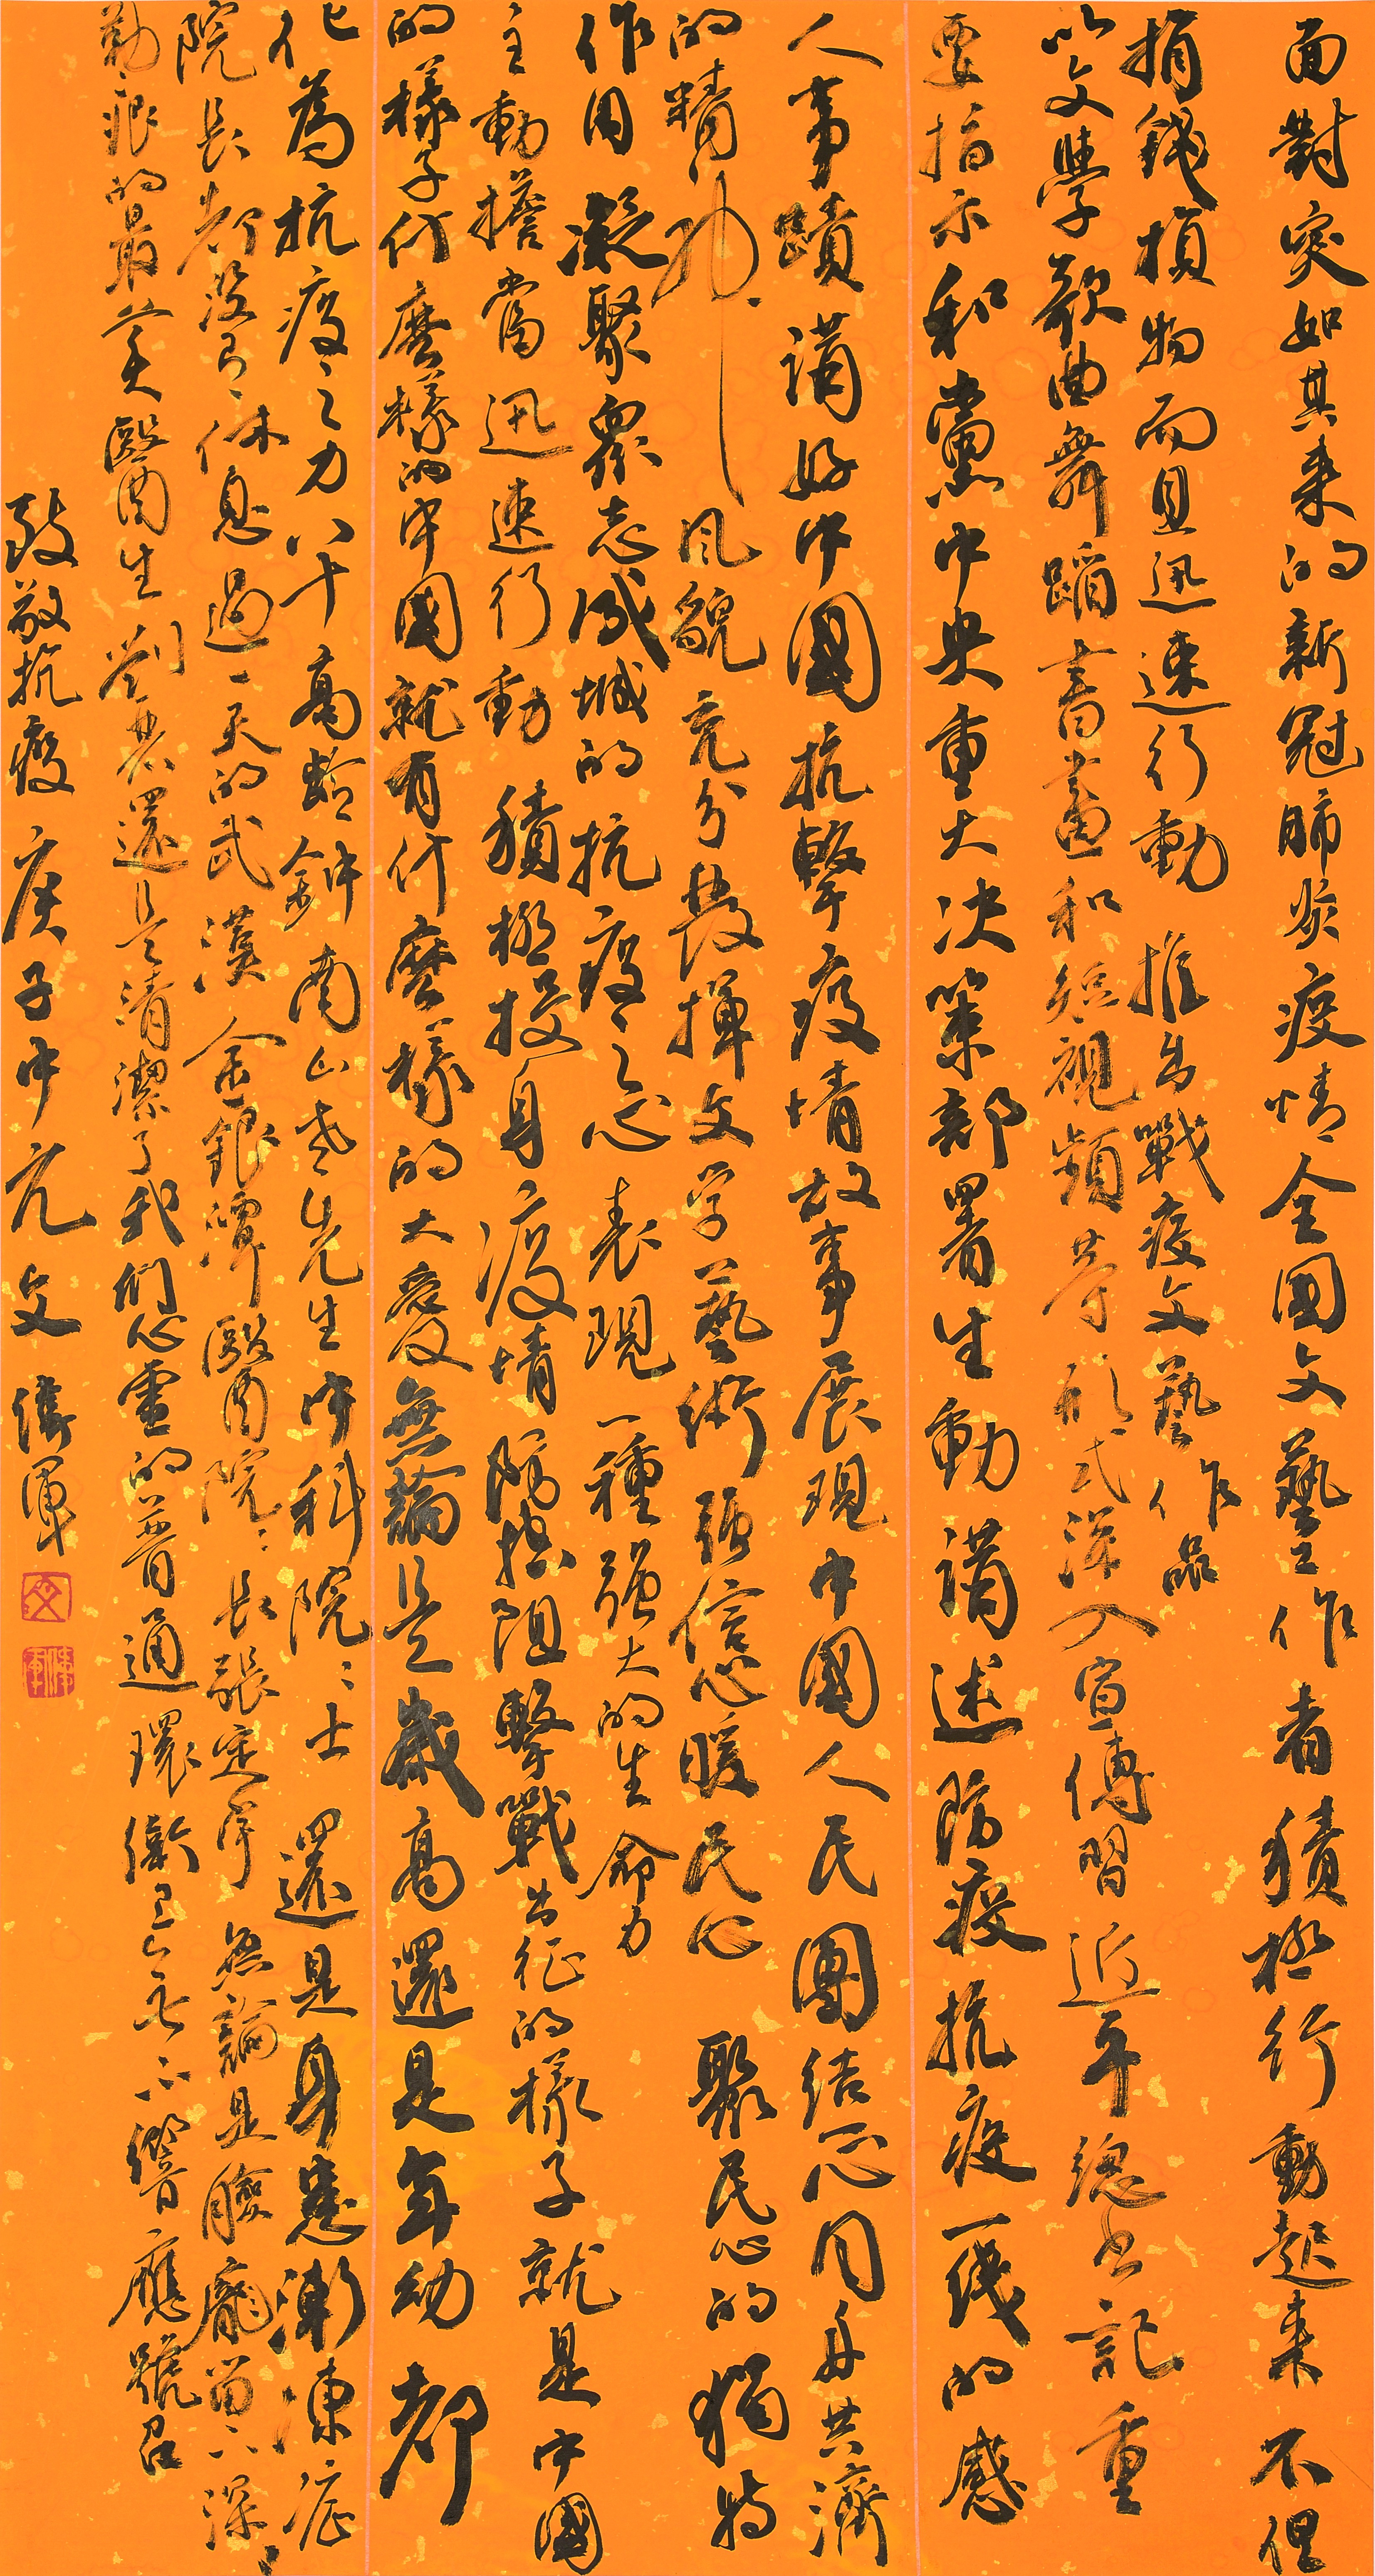 面對突如其来的新冠肺炎疫情全國文藝作者積極行動起来不但
捐錢損物而且迅速行動推出戰疫文藝作品
以文學歌曲舞蹈書畫和短視頻等形式深入宣傳習近平總书記重
要指示和黨中央重大决策部署生動講述防疫抗疫一线的感
人事蹟講好中國抗擊疫情故事展現中國人民團结一心同舟共濟
的精神風貌充分發揮文学藝術强信心暖民心聚民心的獨特
作用凝聚眾志成城的抗疫之心表現一種强大的生命力
主動擔當迅速行動積極投身疫情防控阻擊戰出征的樣子就是中國
的樣子什麼樣的中國就有什麼樣的大愛無論是歲高還是年幼都
化為抗疫之力八十高齡鍾南山老先生中科院院士還是身患漸凍症
院長都没有休息過一天的武漢金銀潭醫院院長張定宇無論是臉龐留下深深
勒痕的最美醫生刘農還是清潔了我們心靈的普通環衛工無不響應號召
致敬抗疫庚子中元文偉軍
文
偉軍